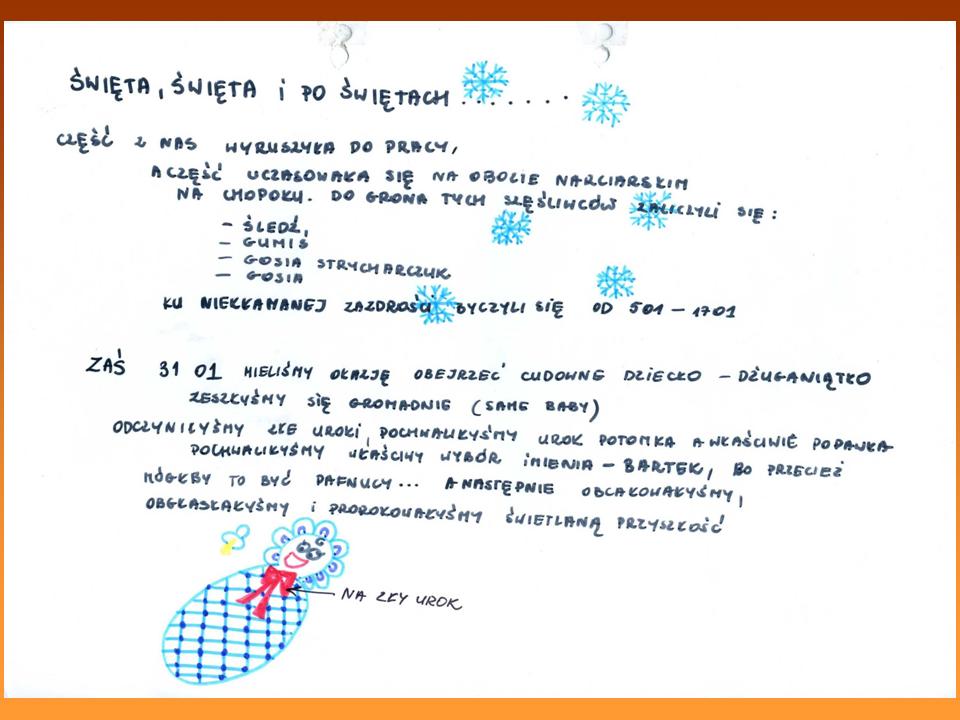 ŚWIĘTA, ŚWIĘTA i PO ŚWIĘTACH .......
CZĘŚĆ Z NAS WYRUSZYŁA DO PRACY,
A CZĘŚĆ UCZASOWAŁA SIĘ NA OBOZIE NARCIARSKIM
NA CHOPOKU. DO GRONA TYCH SZĘŚLIWCÓW ZALICZYLI SIĘ:
- ŚLEDŹ,
- GUMIŚ
- GOSIA STRYCHARCZUK
- GOSIA
KU NIEKŁAMANEJ ZAZDROŚCI BYCZYLI SIĘ OD 501 - 1701
ZAŚ 31 01 MIELIŚMY OKAZJĘ OBEJRZEĆ CUDOWNE DZIECKO - DŻUGANIĄTKO
ZESZŁYŚMY SIĘ GROMADNIE (SAME BABY)
ODCZYNIŁYŚMY ZŁE UROKI, POCHWALIŁYŚMY UROK POTOMKA A WŁAŚCIWIE POPAWKA
POCHWALIŁYŚMY WŁAŚCIWY WYBÓR IMIENIA - BARTEK, BO PRZECIEŻ
MÓGŁBY TO BYĆ PAFNUCY... A NASTĘPNIE OBCAŁOWAŁYŚMY,
OBGŁASKAŁYŚMY I PROROKOWAŁYŚMY ŚWIETLANĄ PRZYSZŁOŚĆ
NA ZŁY UROK